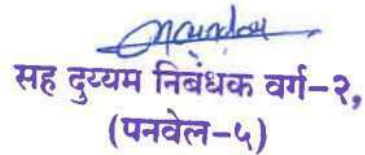 सह दुय्यम निबंधक वर्ग-२,
(पनवेल-५)